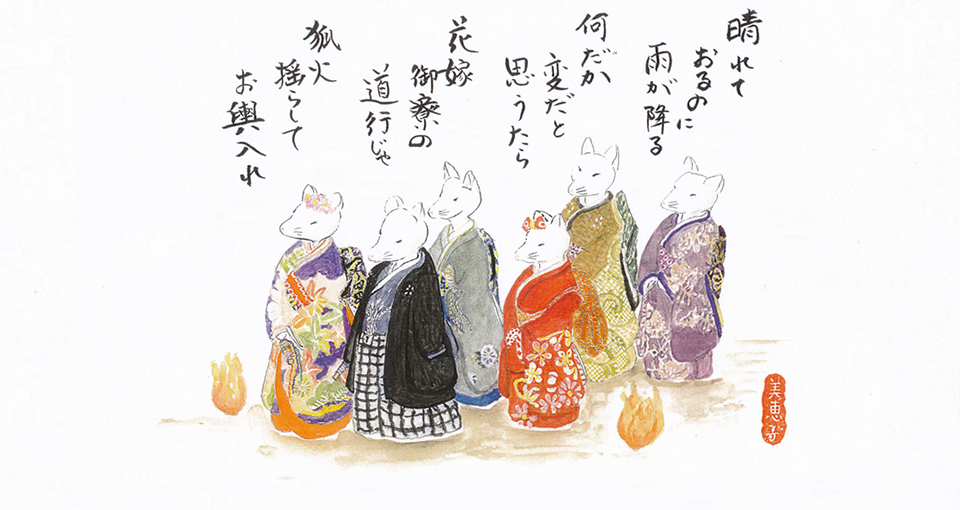 晴れて
おるのに
雨が降る
何だか
変だと
思うたら
花嫁
御寮の
道行じゃ
狐火
揺らして
お輿入れ
美恵子